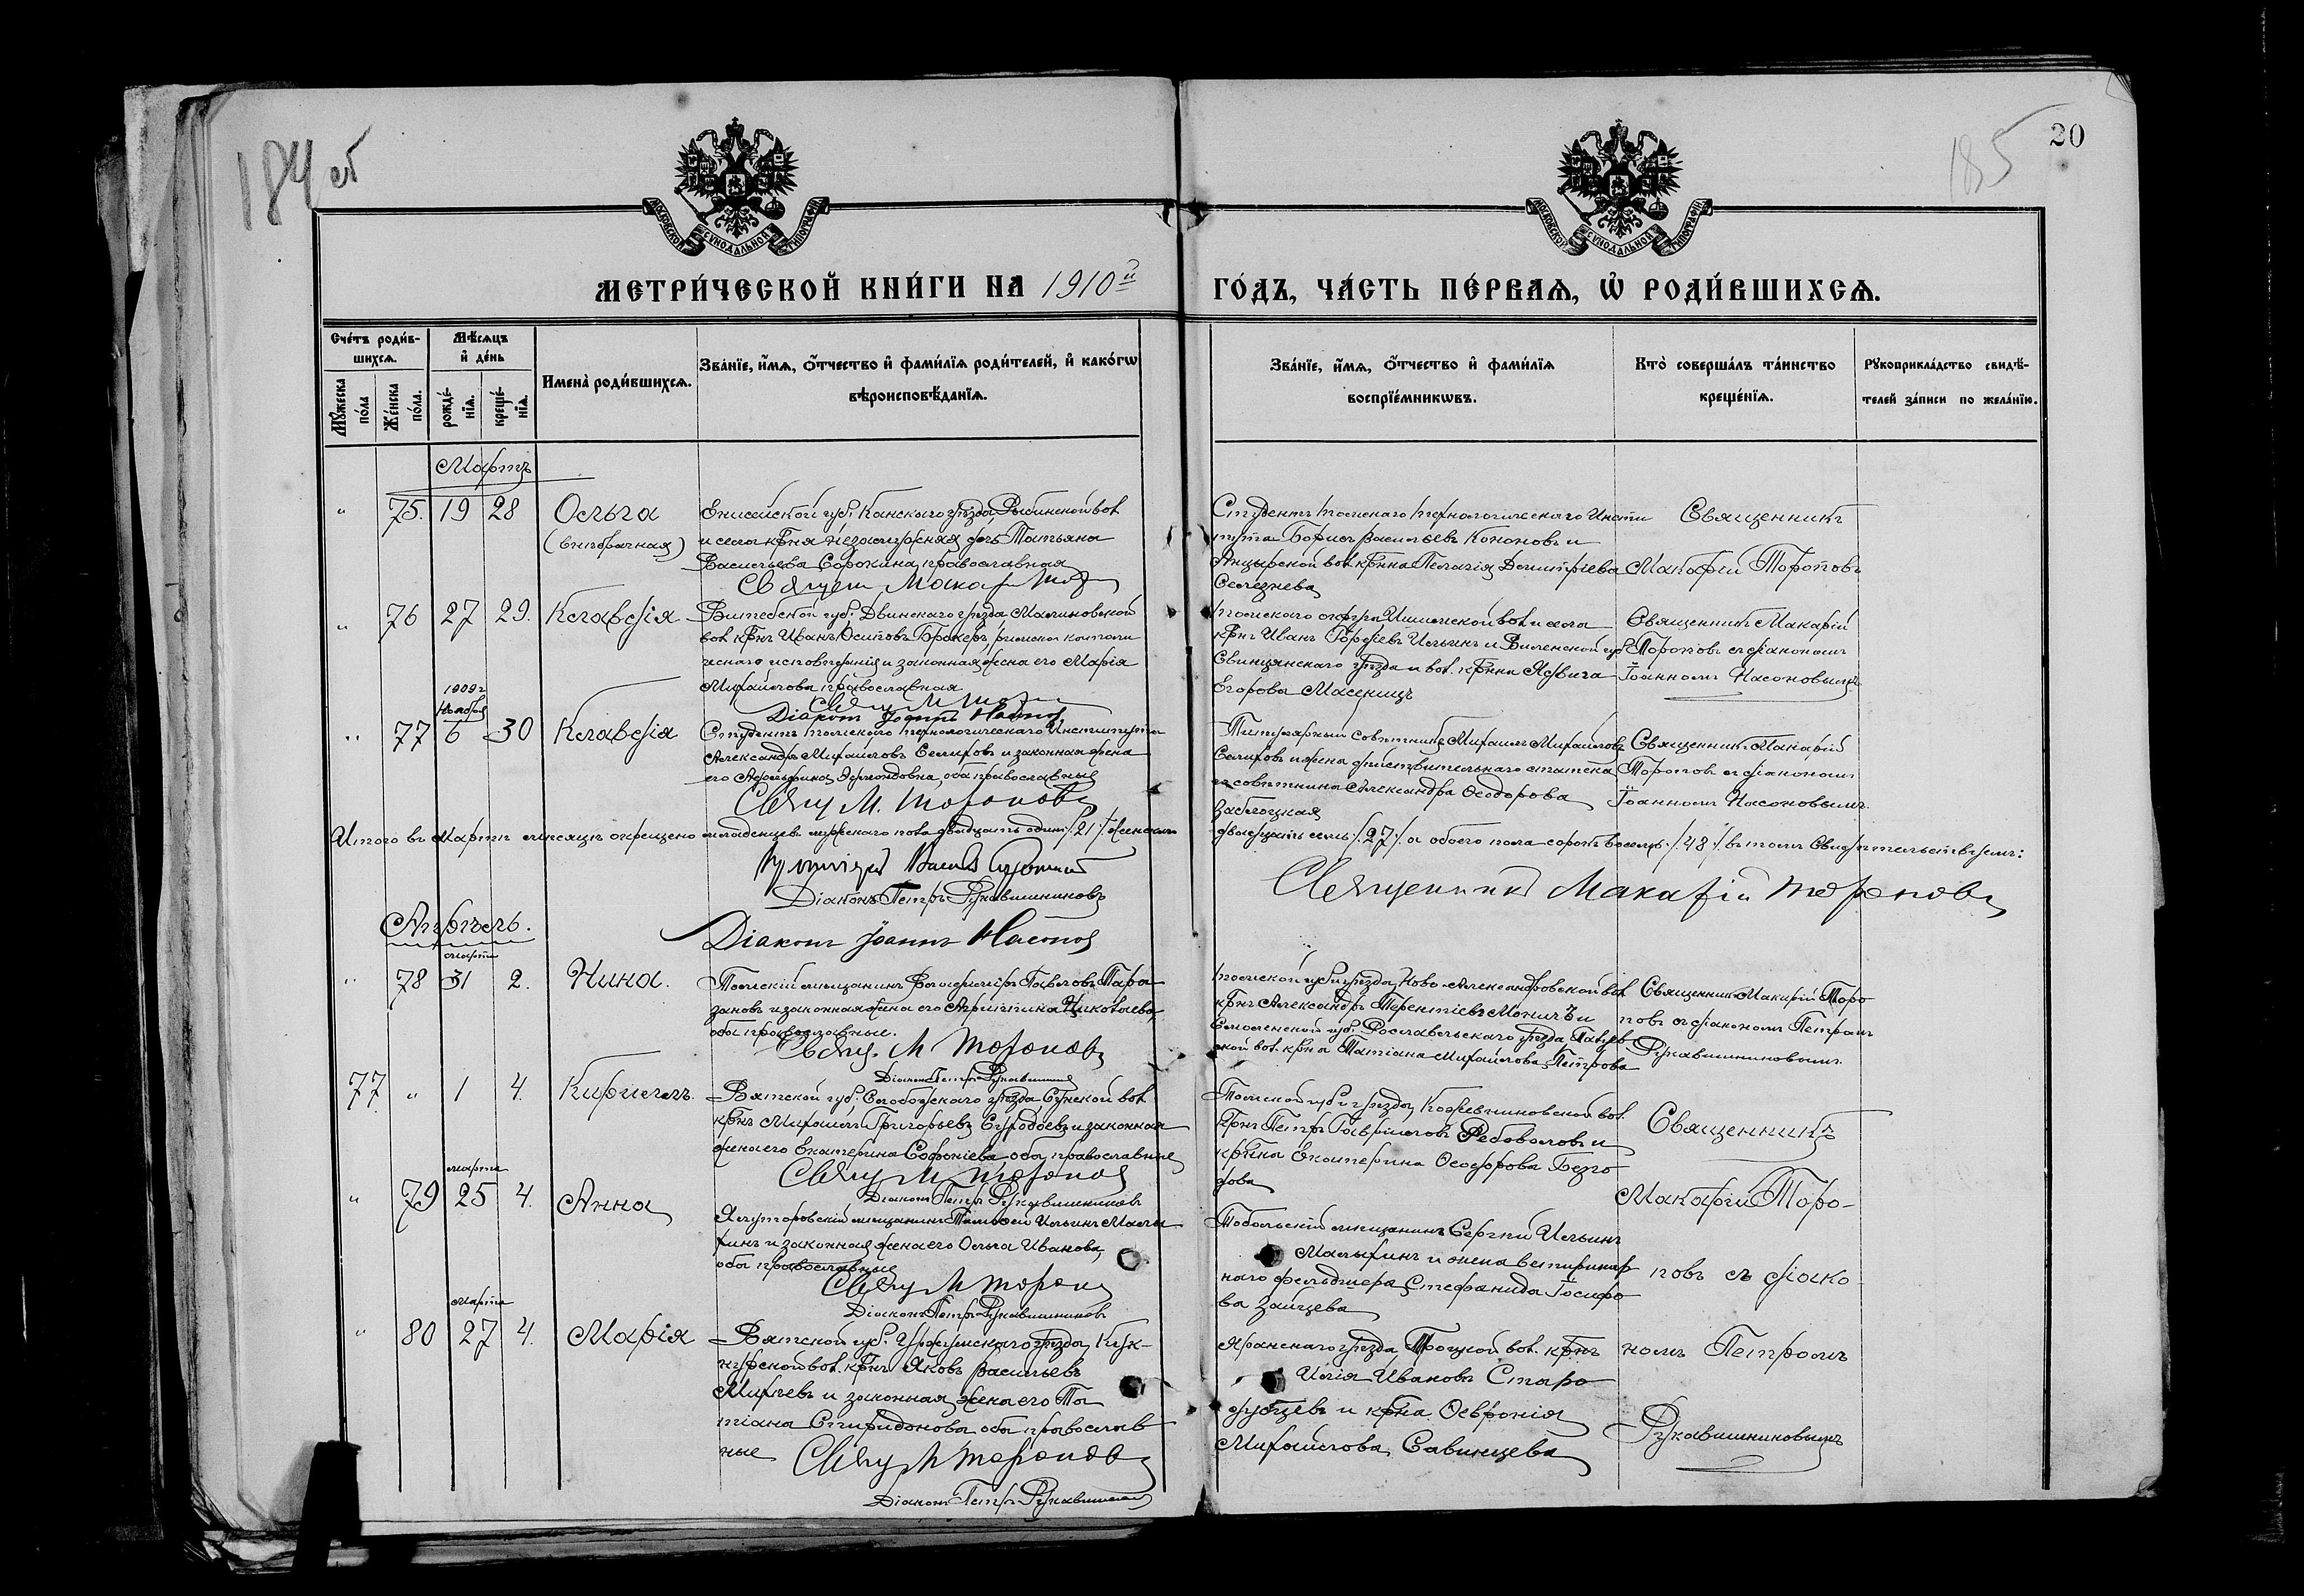 184 об
185
20
МОСКОВСКОЙ СѴНОДАЛЬНОЙ ТИПОГРАФІИ
МОСКОВСКОЙ СѴНОДАЛЬНОЙ ТИПОГРАФІИ
МЕТРИ́ЧЕСКОЙ КНИ́ГИ НА 1910й ГО́ДЪ, ЧА́СТЬ ПЕ́РВАѦ, Ѡ҆ РОДИ́ВШИХСѦ.
Сче́тъ роди́в-
шихсѧ.
Мꙋ́жеска
по́ла
Же́нска
по́ла.
Мѣ́сѧцъ
и҆ де́нь
рожде́-
нїѧ.
креще́-
нїѧ.
Имена̀ роди́вшихсѧ.
Зва́нїе, и҆́мѧ, ѻ҆́тчество и҆ фами́лїѧ роди́телей, и҆ како́гѡ
вѣроисповѣ́данїѧ.
Зва́нїе, и҆́мѧ, ѻ҆́тчество и҆ фами́лїѧ
воспрїе́мникѡвъ.
Кто̀ соверша́лъ та́инство
креще́нїѧ.
Рꙋкоприкла́дство свидѣ́-
телей за́писи по жела́нїю.
Мартъ
" 75. 19 28 Ольга
(внѣбрачная)
Енисейской губ. Канскаго уѣзда Рыбинской вол.
и села кр-ня незамужняя дочь Татьяна
Васильева Сорокина, православная
Студентъ Томскаго Технологическаго Инсти
тута Борисъ Васильевъ Кононовъ и
Анцырской вол. кр-нка Пелагія Димитріева
Селезнева
Священникъ
Макарій Тороповъ
" 76 27 29. Клавдія
Витебской губ. Двинскаго уѣзда Малиновской
вол. кр-нъ Иванъ Осиповъ Брокеръ, римско католи
ческаго исповѣданія и законная жена его Марія
Михайлова православная
Діаконъ Іоаннъ Насоновъ
Томскаго округа Ишимской вол. и села
кр-нъ Иванъ Гордѣевъ Ильинъ и Виленской губ.
Свинцянскаго уѣзда и вол. кр-нка Ядвига
Егорова
Священникъ Макарій
Тороповъ съ діакономъ
Іоанномъ Насоновымъ
1909 г.
Ноября
" 77 6 30 Клавдія
Студентъ Томскаго Технологическаго Института
Александръ Михайловъ Селиховъ и законная жена
его Эдмондовна, оба православные
Свящ. М. Тороповъ
Титулярный совѣтникъ Михаилъ Михайловъ
Селиховъ и жена дѣйствительнаго статска
го совѣтника Александра Ѳеодорова
Заблоцкая
Священникъ Макарій
Тороповъ съ діакономъ
Іоанномъ Насоновымъ.
Итого въ Мартѣ мѣсяцѣ окрещено младенцевъ мужскаго пола двадцать одинъ /.21./ женскаго двадцать семь /.27./ а обоего пола сорокъ восемь /.48./ въ томъ свидѣтельствуемъ:
Діаконъ Петръ Рукавишниковъ
Священникъ Макарій Тороповъ
Діаконъ Іоаннъ Насоновъ
Апрѣль.
марта
" 78 31 2. Нина.
Томскій мещанинъ Павловъ
и законная жена его Агриппина Николаева,
оба православные.
Свящ. М Тороповъ
Діаконъ Петръ Рукавишниковъ
Томской губ. и уѣзда, Ново-Александровской вол.
кр-нъ Александръ Терентіевъ и
Смоленской губ. Рославльскаго уѣзда,
ской вол. кр-нка Татіана Михайлова Петрова
Священникъ Макарій Торо
повъ съ діакономъ Петромъ
Рукавишниковымъ.
77 " 1 4. Кириллъ.
Вятской губ. Слободскаго уѣзда Сунской вол.
кр-нъ Михаилъ Григорьевъ и законная
жена его Екатерина Софоніева оба православные
Свящ М Тороповъ
Діаконъ Петръ Рукавишниковъ
Томской губ. и уѣзда, Кожевниковской вол.
кр-нъ Петръ Гавриловъ и
кр-нка Екатерина Ѳеодорова
Священникъ
марта
" 79 25 4. Анна
Ялуторовскій мещанинъ Тимоѳей Ильинъ Малы
гинъ и законная жена его Ольга Иванова,
оба православные
Свящ М Тороповъ
Діаконъ Петръ Рукавишниковъ
Тобольскій мещанинъ Сергій Ильинъ
Малыгинъ и жена ветеринар
наго фельдшера Стефанида Іосифо
ва Зайцева
Макарій Торо-
повъ съ діако
марта
" 80 27 4. Марія
Вятской губ. Уржумскаго уѣзда, Кук-
нурской вол. кр-нъ Яковъ Васильевъ
и законная жена его Та
тіана Спиридонова оба православ
ные Свящ М Тороповъ
Діаконъ Петръ Рукавишниковъ
Яранскаго уѣзда, Троицкой вол. кр-нъ
Илія Ивановъ Старо
дубцевъ и кр-нка Ѳевронія
Михайлова Савинцева
номъ Петромъ
Рукавишниковымъ